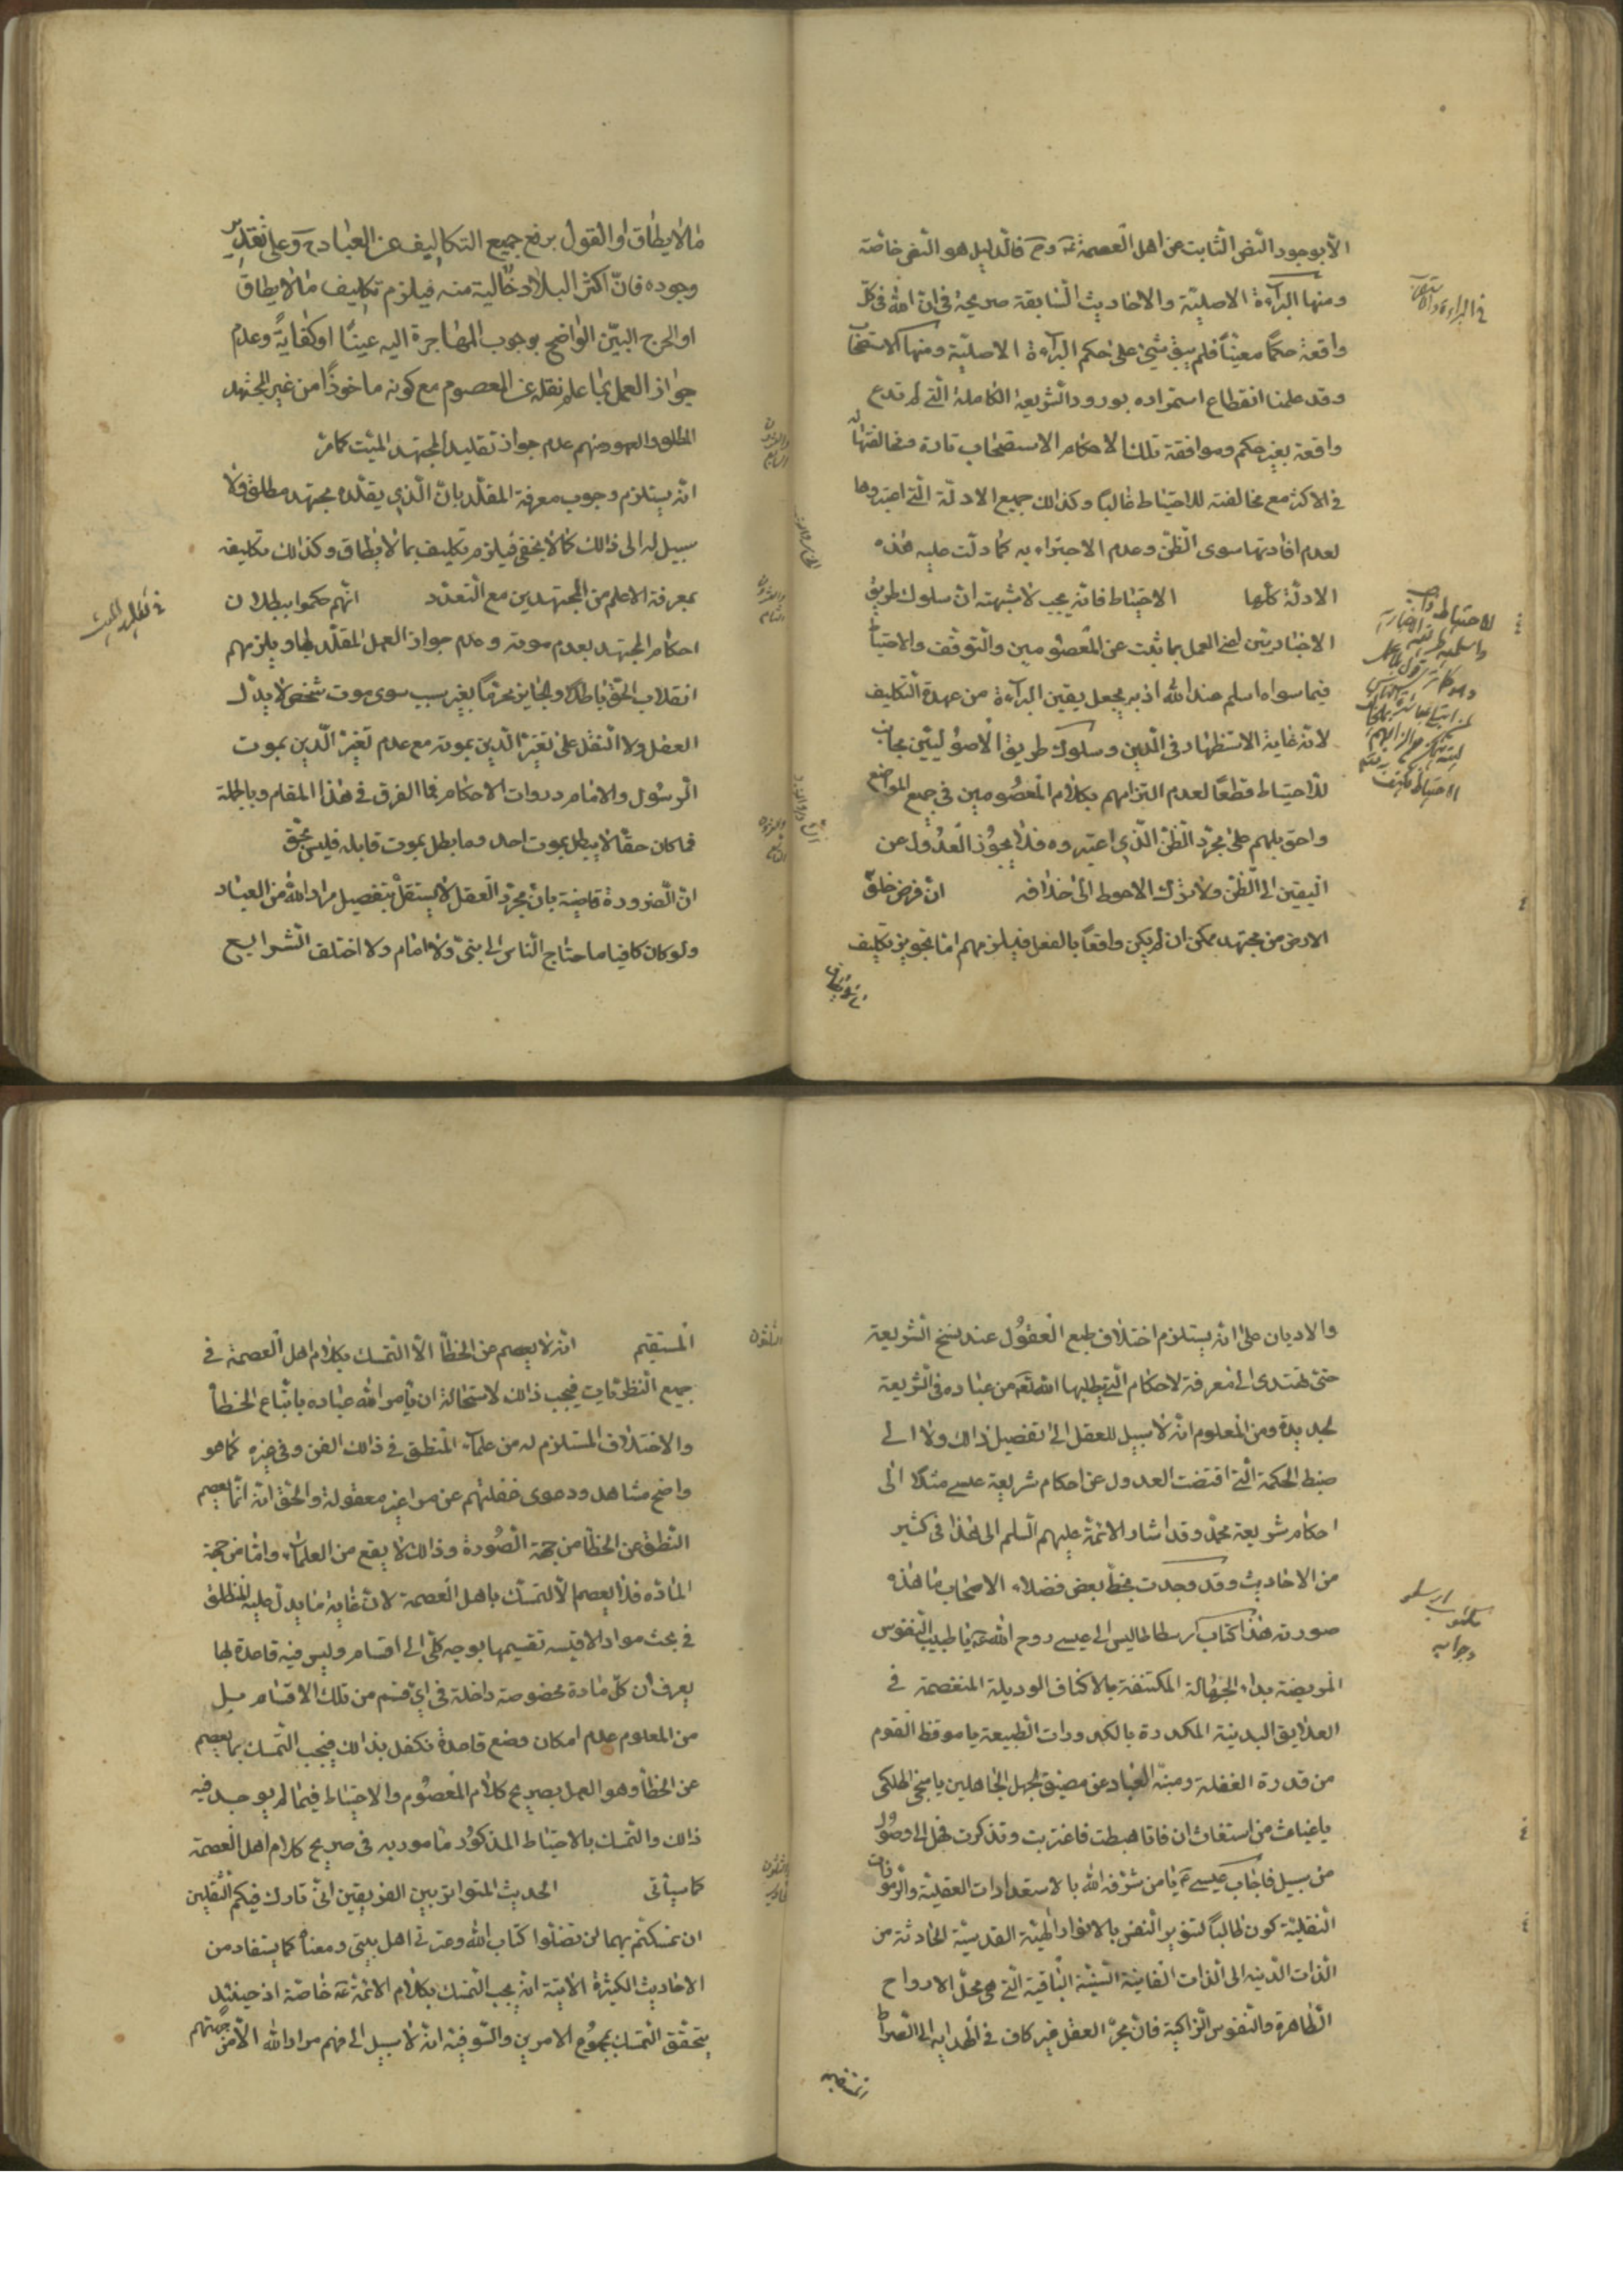 الا بوجود النص الثابت عن اهل العصمة عم وح فالدليل هو النص خاصة
ومنها البراءة الاصلية والاحاديث السابقة صريحة في ان لله في كل
واقعة حكما معينا فلم يبق شئ على حكم البراءة الاصلية ومنها الاستصحاب
وقد علمنا انقطاع استمراره بورود الشريعة الكاملة التي لم تدع
واقعة بغير حكم وموافقة تلك الاحكام الاستصحاب تارة ومخالفتها له
في الاكثر مع مخالفته للاحتياط غالبا وكذلك جميع الادلة التي اعتبروها
لعدم افادتها سوى الظن وعدم الاجتزاء به كما دلت عليه هذه
الادلة كلها الاحتياط فانه يجب لا شبهة ان سلوك طريق
الاخباريين لعنى العمل بما ثبت عن المعصومين والتوقف والاحتياط
فيما سواه اسلم عند الله اذ به يحصل يقين البراءة من عهدة التكليف
لانه غاية الاستظهار في الدين وسلوك طريق الاصوليين مجانب
للاحتياط قطعا لعدم التزامهم بكلام المعصومين في جميع المواضع
واحق يلهم على مجرد الظن الذي اعتبروه فلا يجوز العدول عن
اليقين الى الظن ولا ترك الاحوط الى خلافه ان فرض خلو
الارض من مجتهد ممكن ان لم يكن واقعا بالفعل فيلزمهم اما تجويز تكليف
ما لا يطاق
في البراءة والاستصحاب
الاحتياط
ما لا يطاق او القول برفع جميع التكاليف عن العباد ح وعلى تقدير
وجوده فان اكثر البلاد خالية منه فيلزم تكليف ما لا يطاق
او الحرج البين الواضح بوجوب المهاجرة اليه عينا او كفاية وعدم
جواز العمل بما علم نقله عن المعصوم مع كونه ماخوذا من غير المجتهد
المطلق والمعهود منهم عدم جواز تقليد المجتهد الميت كما مر
انه يستلزم وجوب معرفة المقلد بان الذي يقلده مجتهد مطلق ولا
سبيل له الى ذلك كما لا يخفى فيلزم تكليف بما لا يطاق وكذلك تكليفه
بمعرفة الاعلم من المجتهدين مع التعدد انهم حكموا ببطلان
احكام المجتهد بعدم موته وعدم جواز العمل المقلد لها ويلزمهم
انقلاب الحق باطلا والجايز محرما بغير سبب سوى موت شخص لا يدل
العقل ولا النقل على تغير الدين بموته مع عدم تغير الدين بموت
الرسول والامام ورواة الاحكام فما الفرق في هذا المقام وبالجملة
فما كان حقا لا يبطل بموت احد وما بطل بموت قايله فليس بحق
ان الضرورة قاضية بان مجرد العقل لا يستقل بتفصيل مراد الله من العباد
ولو كان كافيا ما احتاج الناس الى نبى ولا امام ولا اختلف الشرايع
في تقليد الميت
والاديان على انه يستلزم اختلاف طبع العقول عند نسخ الشريعة
حتى تهتدى الى معرفة الاحكام التي يطلبها الله تعه من عباده في الشريعة
الجديدة ومن المعلوم انه لا سبيل للعقل الى تفصيل ذلك ولا الى
ضبط الحكمة التي اقتضت العدول عن احكام شريعة عيسى مثلا الى
احكام شريعة محمد وقد اشار الائمة عليهم السلم الى هذا في كثير
من الاحاديث وقد وجدت بخط بعض فضلاء الاصحاب ما هذه
صورته هذا كتاب ارسطاطاليس الى عيسى روح الله عه يا طبيب النفوس
المريضة بداء الجهالة المكتنفة بالاكناف الرديلة المنغصمة في
العلايق البدنية المكدرة بالكدورات الطبيعة يا موقظ القوم
من قدرة الغفلة ومنبه العباد عن مضيق الجهل الجاهلين يا منجى الهلكى
يا غياث من استغاث ان فانا هبطت فاغتربت وتذكرت فهل الى وصول
من سبيل فاجاب عيسى ع يا من شرفه الله بالاستعدادات العقلية والرموزات
النقلية كون طالبا لتنوير النفس بالانوار الهية القدسية الحادثة من
الذات الدنية الى الذات الفانية السنية الباقية التي هي محل الارواح
الطاهرة والنفوس الزاكية فان مجرد العقل غير كاف في الهداية الى الصراط
المستقيم
مكتوب ارسطو
وجوابه
المستقيم انه لا يعصم عن الخطأ الا التمسك بكلام اهل العصمة في
جميع النظريات فيجب ذلك لاستحالة ان يأمر الله عباده باتباع الخطأ
والاختلاف المستلزم له من علماء المنطق في ذلك الفن وفي غيره كما هو
واضح مشاهد ودعوى غفلتهم عن مراغير معقولة والحق انه انما يعصم
النطق عن الخطأ من جهة الصورة وذلك لا يقع من العلماء واما من جهة
المادة فلا يعصم الا التمسك باهل العصمة لان غاية ما يدل عليه المنطق
في بحث مواد الاقيسة تقسيمها بوجه كلى الى اقسام وليس فيه قاعدة بها
يعرف ان كل مادة مخصوصة داخلة في اى قسم من تلك الاقسام بل
من المعلوم عدم امكان وضع قاعدة تكفل بذلك فيجب التمسك بما يعصم
عن الخطأ وهو العمل بصريح كلام المعصوم والاحتياط فيما لم يوجد فيه
ذلك والتمسك بالاحتياط المذكور مامور به في صريح كلام اهل العصمة
كما سيأتى الحديث المتواتر بين الفريقين انى تارك فيكم الثقلين
ان تمسكتم بهما لن تضلوا كتاب الله وعترتى اهل بيتى ومعناه كما يستفاد من
الاحاديث الكثيرة الاتية انه يجب التمسك بكلام الائمة عه خاصة اذ حينئذ
يتحقق التمسك بمجموع الامرين والسر فيه انه لا سبيل الى فهم مراد الله الا من جهتهم